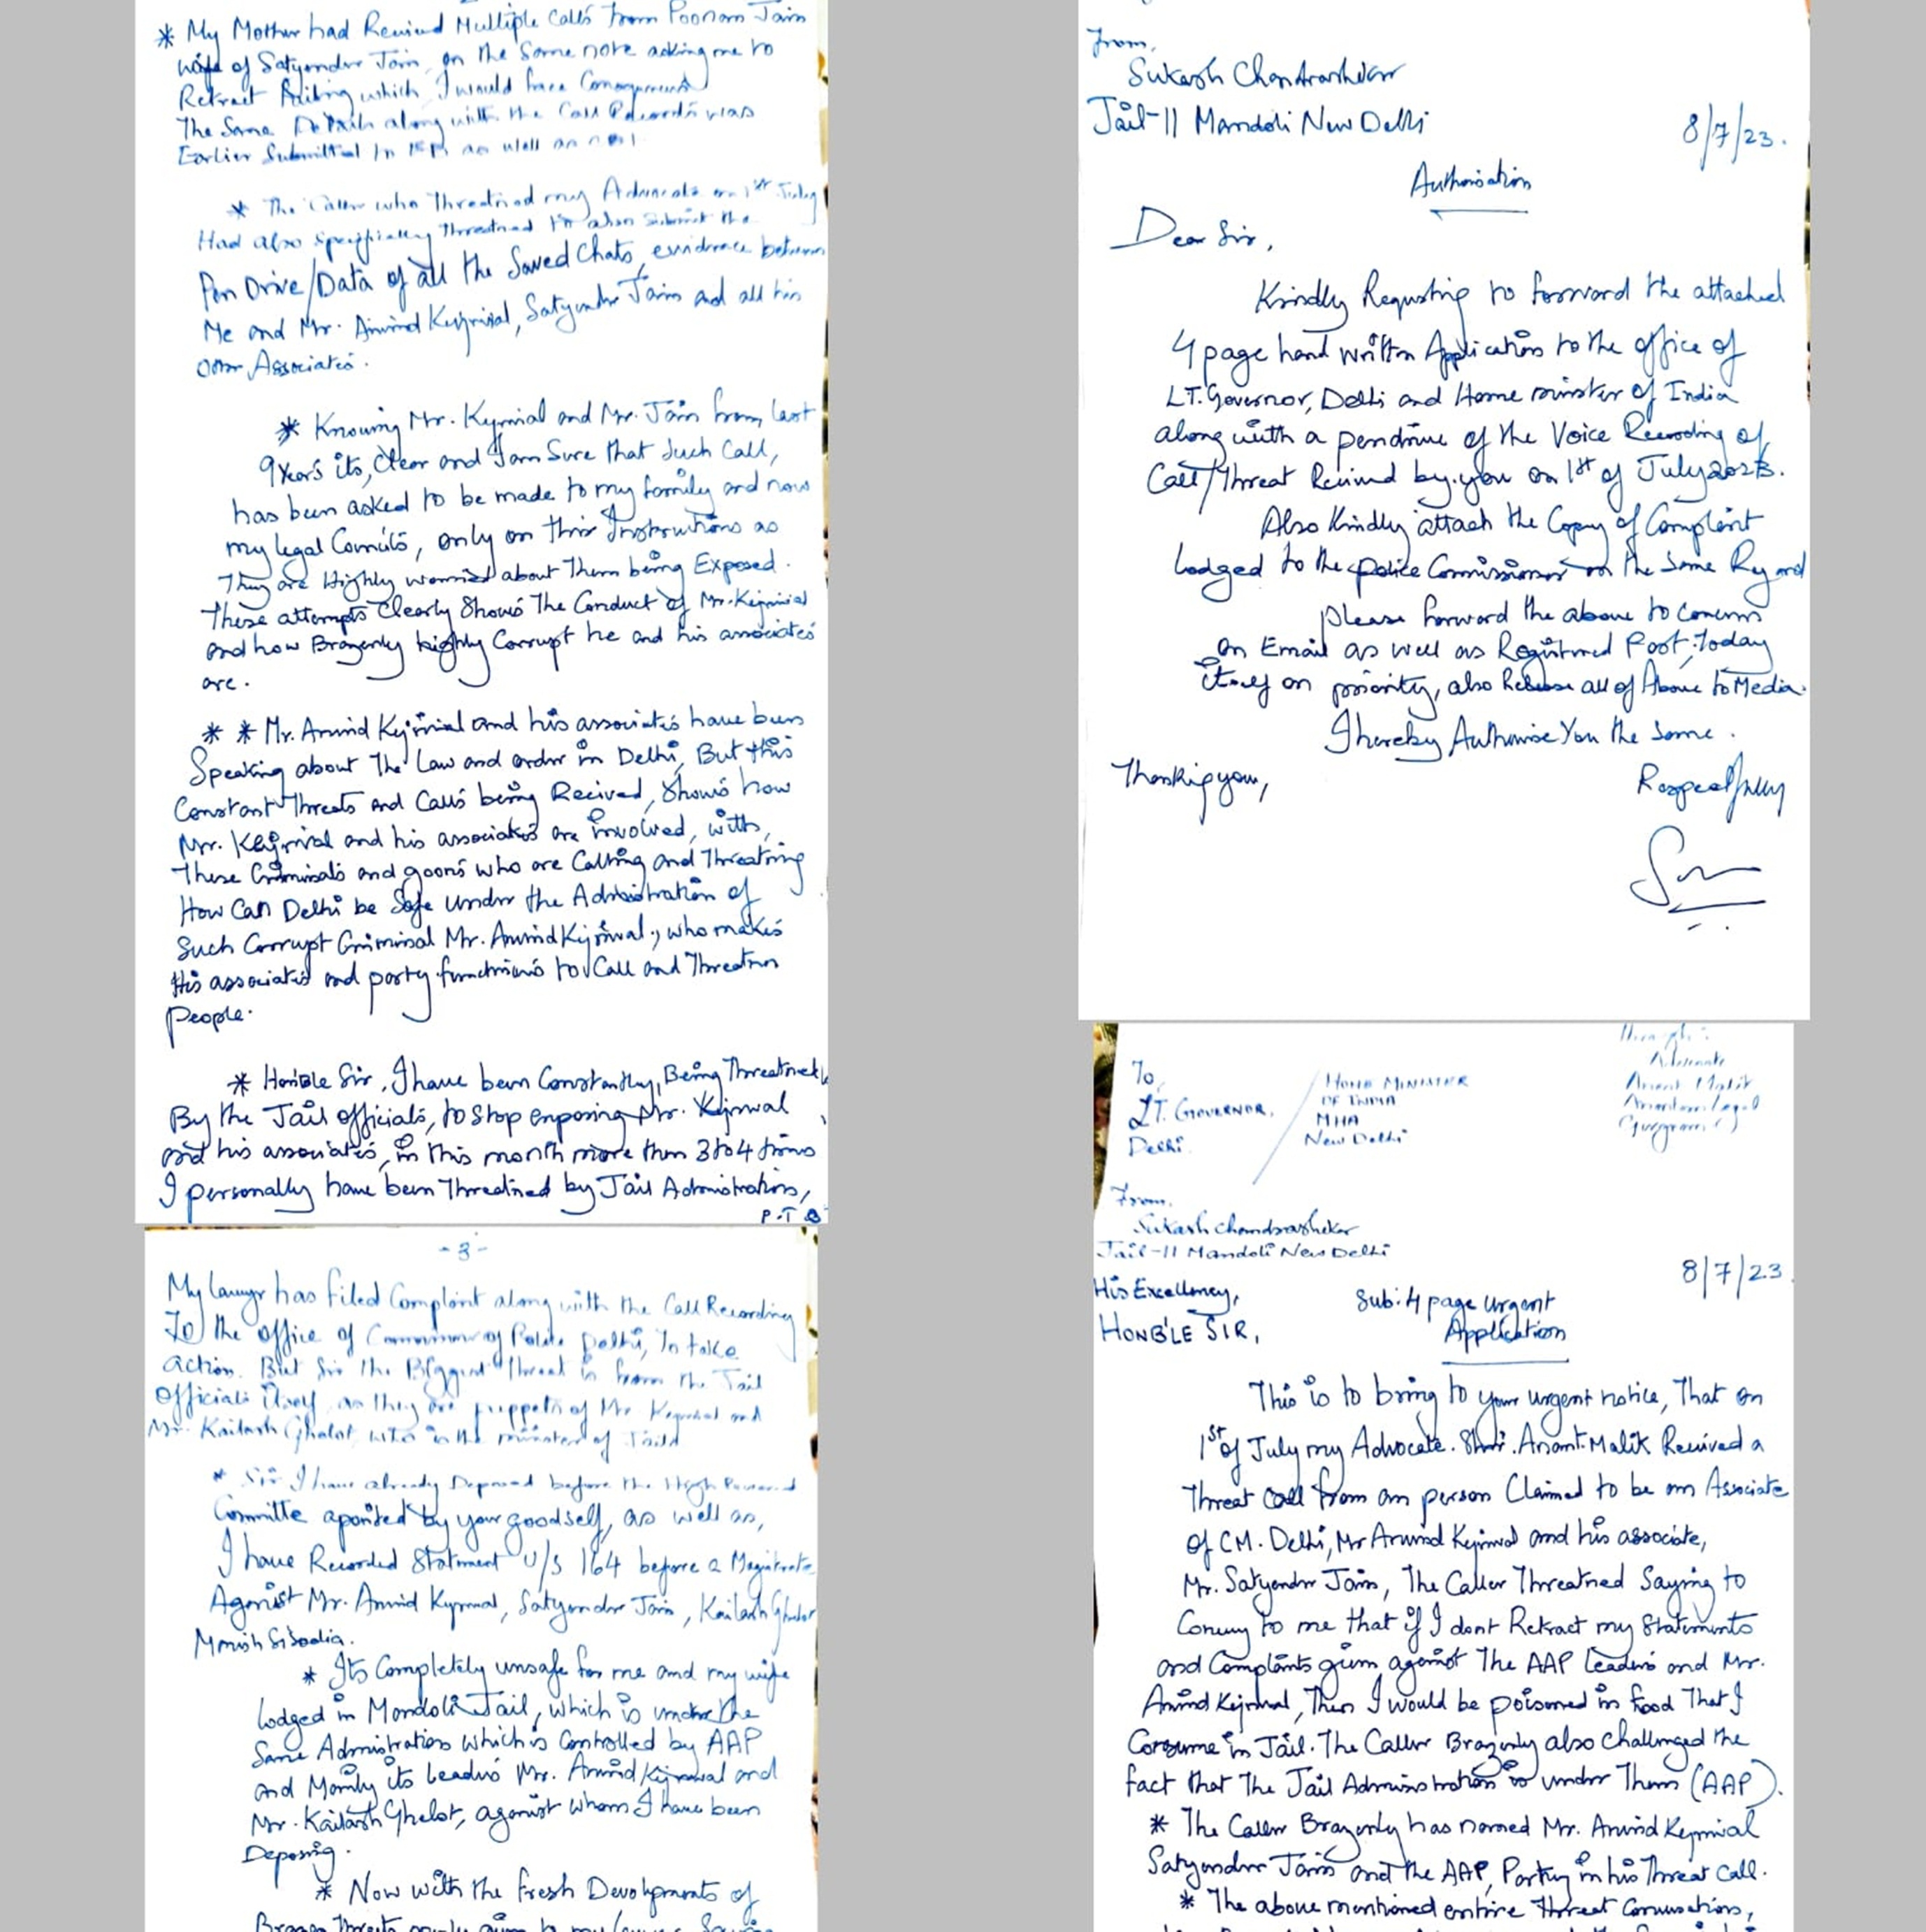 * My Mother had Recived Multiple Calls from Poonam Jain
wife of Satyender Jain, on the Same note asking me to
Retract failing which, I would face Consequences
The Same Details along with the Call Records was
Earlier Submitted In as well as
* The Caller who Threatned my Advocate on 1st July
Had also specifically threatned to also submit the
Pen Drive/Data of all the Saved Chats, evidence between
Me and Mr. Arvind Kejriwal, Satyender Jain and all his
other Associates.
* Knowing Mr. Kejriwal and Mr. Jain from last
9 Years its, Clear and I am Sure that Such Call,
has been asked to be made to my family and now
my legal Councils, only on their Instructions as
They are Highly worried about Them being Exposed.
These attempts Clearly Shows The Conduct of Mr. Kejriwal
and how Brazenly highly Corrupt he and his associates
are.
* * Mr. Arvind Kejriwal and his associates have been
Speaking about The Law and order in Delhi, But this
Constant Threats and Calls being Recived, Shows how
Mr. Kejriwal and his associates are involved, with,
These Criminals and goons who are Calling and Threatning
How Can Delhi be Safe under the Administration of
Such Corrupt Criminal Mr. Arvind Kejriwal, who makes
His associates and party functionis to Call and Threaten
People.
* Hon'ble Sir, I have been Constantly, Being Threatned
By the Jail officials, to Stop exposing Mr. Kejriwal
and his associates, in this month more then 3 to 4 times
I personally have been Threatned by Jail Administration,
P.T.O
- 3 -
My lawyer has filed Complaint along with the Call Recording
To the office of Commissioner of Police Delhi, To take
action. But Sir the Biggest threat is from the Jail
officials itself, as they are puppets of Mr. Kejriwal and
Mr. Kailash Ghelot, who is the minister of Jails
* Sir I have already Deposed before the High Powered
Committe aponted by your goodself, as well as,
I have Recorded Statment U/S 164 before a Magistrate
Against Mr. Arvind Kejriwal, Satyender Jain, Kailash Ghelot
Manish Sisodia.
* Its Completely unsafe for me and my wife
lodged in Mandoli Jail, which is under the
Same Administration which is Controlled by AAP
and Mainly its leaders Mr. Arvind Kejriwal and
Mr. Kailash Ghelot, against whom I have been
Deposing.
* Now with the Fresh Devolopments of
From,
Sukash Chandrashekar
Jail-11 Mandoli New Delhi
8/7/23.
Authorisation
Dear Sir,
Kindly Requsting to forward the attached
4 page hand written Application to the office of
LT. Governor, Delhi and Home minister of India
along with a pendrive of the Voice Recording of
Call/threat Recived by you on 1st of July 2023.
Also Kindly attach the Copy of Complaint
lodged to the police Commissioner on the Same Regard
Please forward the above to concern
on Email as well as Registered Post, today
itself on priority, also Release all of Above to Media.
I hereby Authorise You the Same.
Thanking you,
Respectfully
To,
LT. GOVERNOR,
Delhi.
HOME MINISTER
OF INDIA
MHA
New Delhi
Through:
Advocate
Anant Malik
From,
Sukash Chandrashekar
Jail-11 Mandoli New Delhi
8/7/23.
His Excellency,
HON'BLE SIR,
Sub: 4 page urgent
Application
This is to bring to your urgent notice, That on
1st of July my Advocate. Shri. Anant Malik Recived a
Threat Call from an person Claimed to be an Associate
of CM. Delhi, Mr Arvind Kejriwal and his associate,
Mr. Satyender Jain, The Caller Threatned Saying to
Convey to me that if I dont Retract my Statements
and Complaints given against The AAP leaders and Mr.
Arvind Kejriwal, Then I would be poisoned in food That I
Consume in Jail. The Caller Brazenly also Challenged the
fact that The Jail Administration is under Them (AAP).
* The Caller Brazenly has named Mr. Arvind Kejriwal
Satyender Jain and the AAP, Party in his Threat Call.
* The above mentioned entire Threat Conversation,